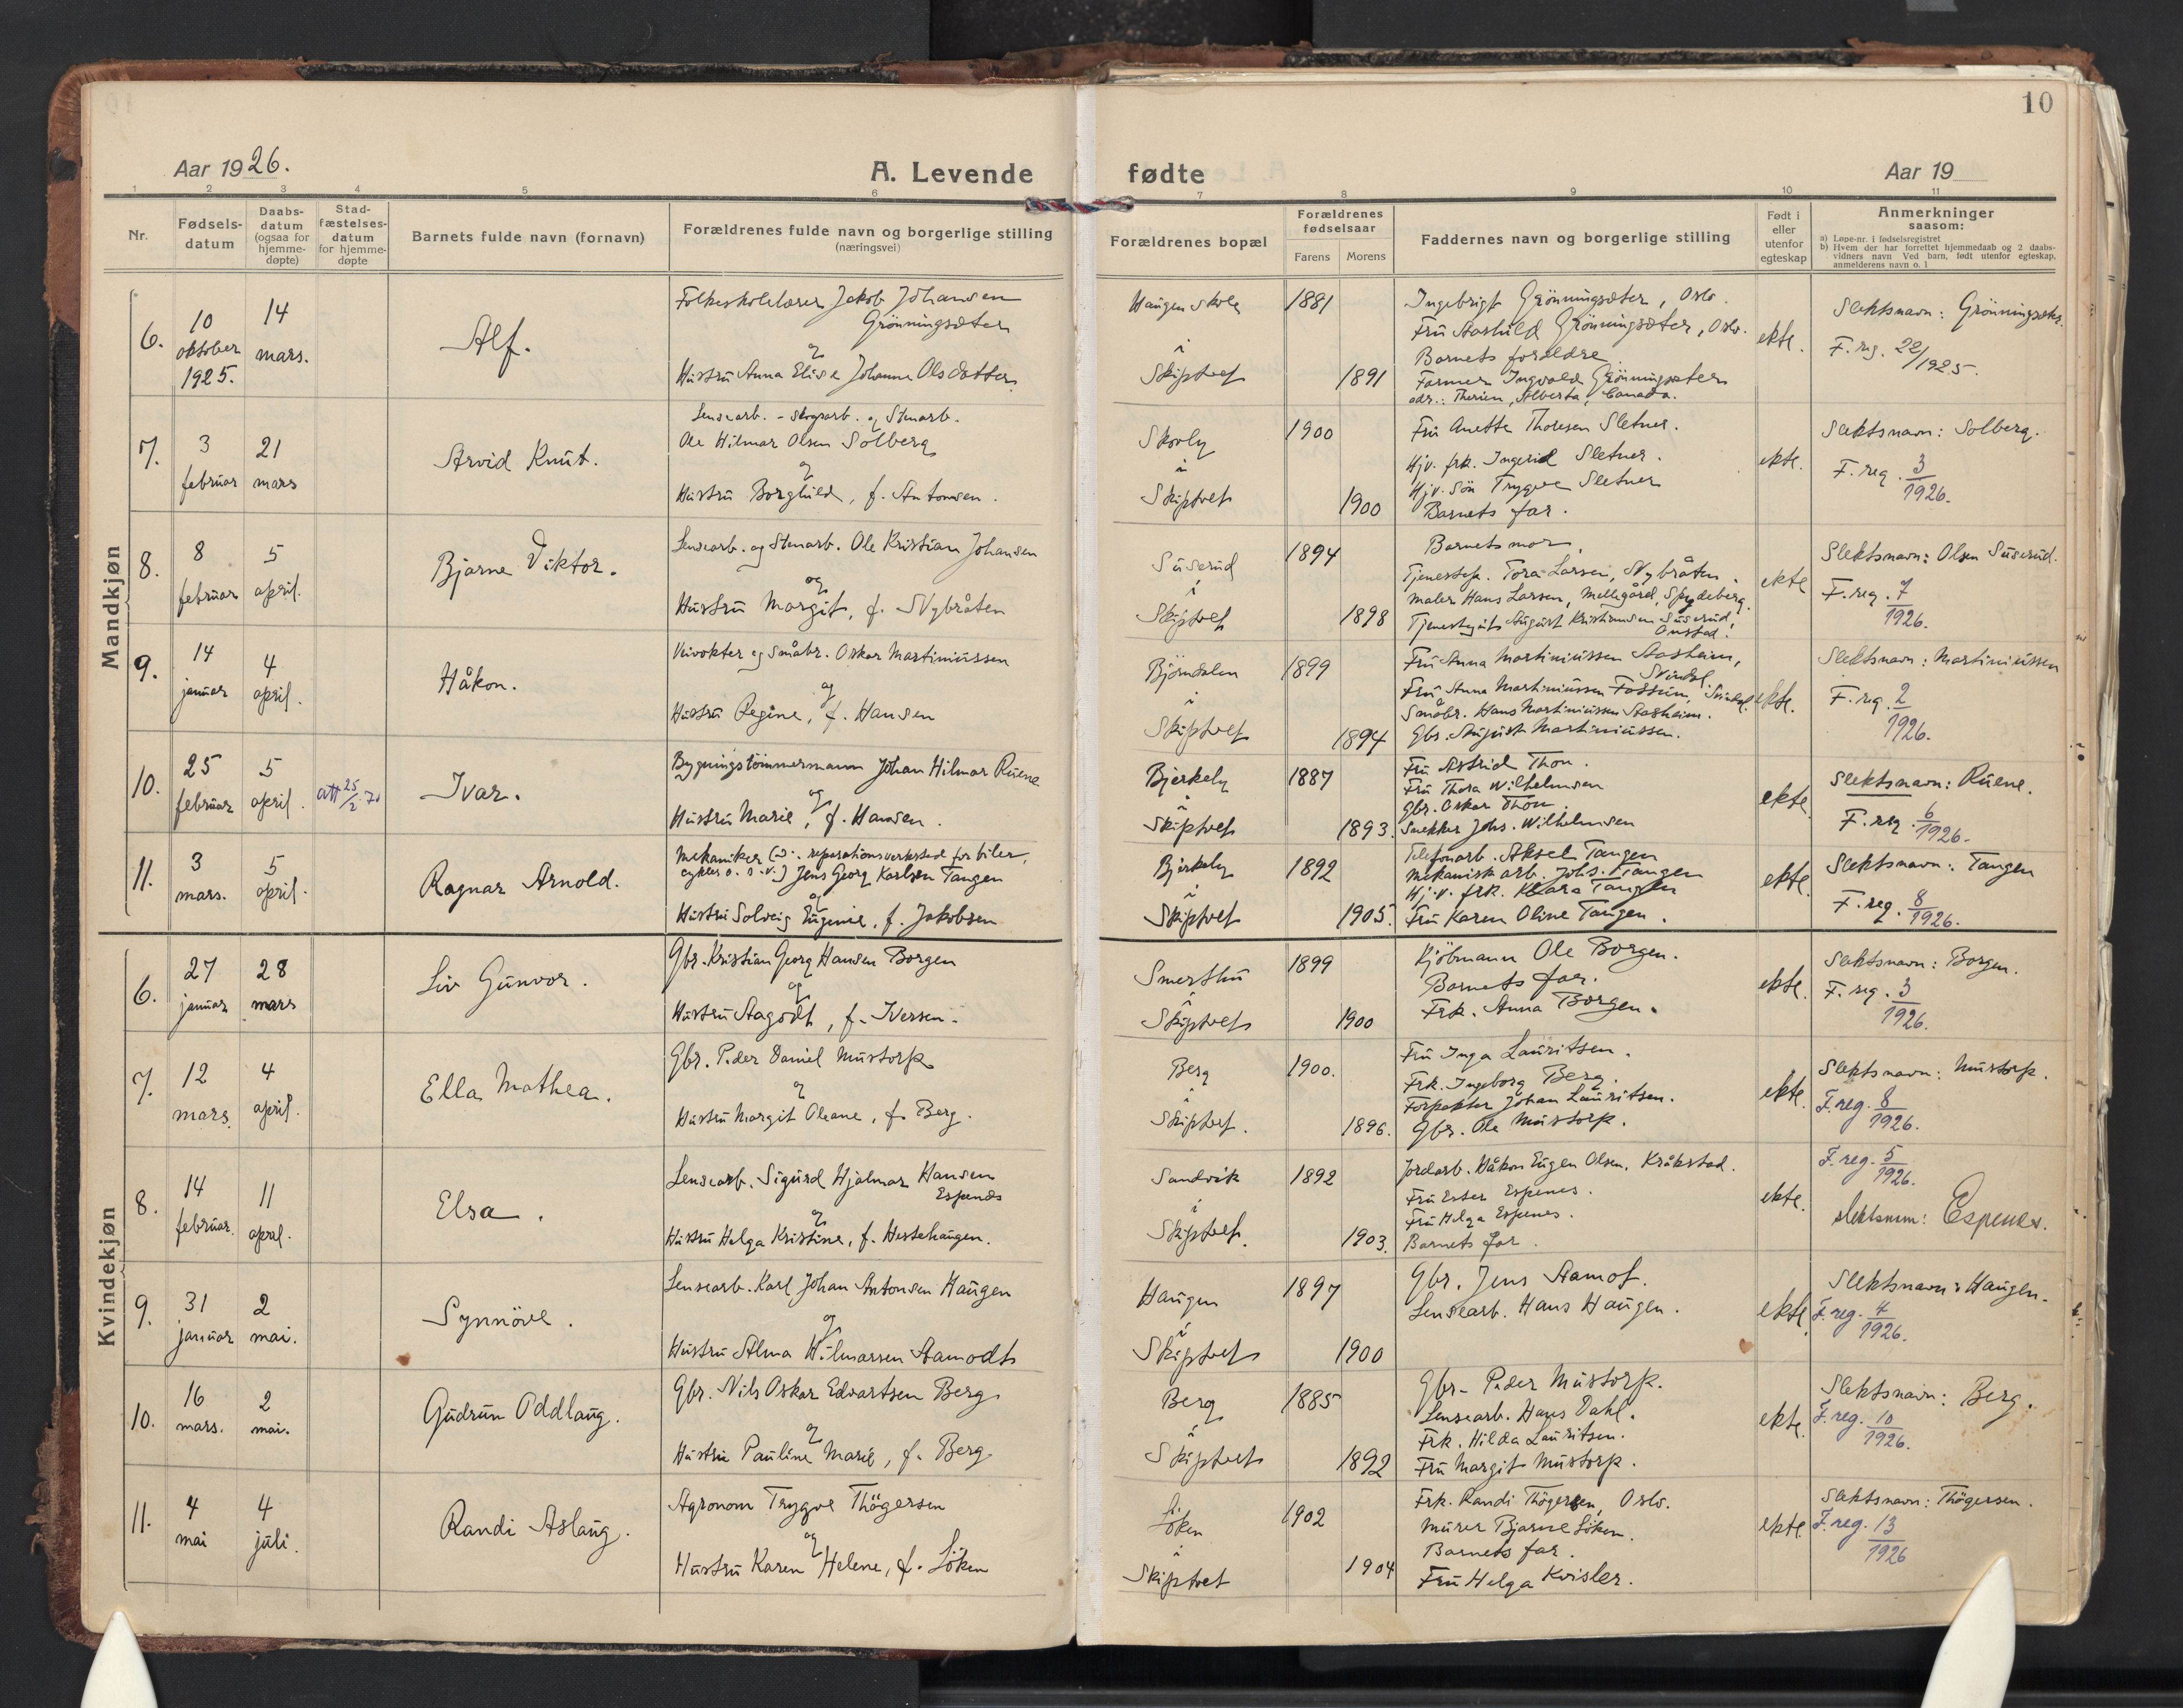 10
Aar 1926.
A. Levende
fødte
Aar 19
1 2 3 4 5 6 7 8 9 10 11
Nr.
Fødsels-
datum
Daabs-
datum
(ogsaa for
hjemme-
døpte)
Stad-
fæstelses-
datum
for hjemme-
døpte
Barnets fulde navn (fornavn)
Forældrenes fulde navn og borgerlige stilling
(næringsvei)
Forældrenes bopæl
Forældrenes
fødselsaar
Farens Morens
Faddernes navn og borgerlige stilling
Født i
eller
utenfor
egteskap
Anmerkninger
saasom:
a) Løpe-nr. i fødselsregistret
b) Hvem der har forrettet hjemmedaab og 2 daabs-
vidners navn Ved barn, født utenfor egteskap,
anmelderens navn o. l
Mandkjøn
6.
10
oktober
1925.
14
mars.
Alf.
Folkeskolelærer Jakob Johansen
Grönningsæter
og
Hustru Anna Elise Johanne Olsdatter
Haugen skole
i
Skiptvet
1881
1891
Ingebrigt Grönningsæter, Oslo.
Fru Aashild Grönningsæter, Oslo.
Barnets foreldre
Farmer Ingvald Grönningsæter
adr.: Therien, Alberta, Canada.
ekte.
Slektsnavn: Grönningsæter.
F. reg. 22/1925.
7.
3
februar
21
mars
Arvid Knut.
Lensearb. - skogsarb. og Stenarb.
Ole Hilmar Olsen Solberg
og
Hustru Borghild, f. Antonsen.
Skovly
i
Skiptvet
1900
1900
Fru Anette Thoresen Sletner.
Hjv. frk. Ingerid Sletner.
Hjv. sön Trygve Sletner
Barnets far.
ekte.
Slektsnavn: Solberg.
F. reg. 3/1926.
8.
8
februar
5
april.
Bjarne Viktor.
Lensearb. og Stenarb. Ole Kristian Johansen
og
Hustru Margit, f. Nybråten
Suserud
i
Skiptvet
1894
1898
Barnets mor.
Tjenestep. Tora Larsen, Nybråten.
Maler Hans Larsen, Mellegård, Spydeberg.
Tjenestegut August Kristiansen Suserud,
Onstad.
ekte
Slektsnavn: Olsen Suserud.
F. reg. 7/1926.
9.
14
januar
4
april.
Håkon.
Veivokter og småbr. Oskar Martiniussen
og
Hustru Regine, f. Hansen
Björndalen
i
Skiptvet
1899
1894
Fru Anna Martiniussen Aasheim,
Svindal.
Fru Anna Martiniussen Fossum, Svindal.
Småbr. Hans Martiniussen Aasheim.
Gbr. August Martiniussen.
ekte.
Slektsnavn: Martiniussen
F. reg. 2/1926.
10.
25
februar
5
april.
att 25/2.70
Ivar.
Bygningstömmermann Johan Hilmar Ruene
og
Hustru Marie, f. Hansen.
Bjerkely
i
Skiptvet
1887
1893.
Fru Astrid Thon.
Fru Thora Wilhelmsen
Gbr. Oskar Thon.
Snekker Johs. Wilhelmsen
ekte.
Slektsnavn: Ruene.
F. reg. 6/1926.
11.
3
mars.
5
april.
Ragnar Arnold.
Mekaniker (o: reparationsverksted for biler,
cykler o. s. v.) Jens Georg Karlsen Tangen
og
Hustru Solveig Eugenie, f. Jakobsen
Bjerkely
i
Skiptvet
1892
1905.
Telefonarb. Aksel Tangen
Mekanisk arb. Johs. Tangen
Hj.v. frk. Klara Tangen
Fru Karen Oline Tangen.
ekte.
Slektsnavn: Tangen
F. reg. 8/1926.
Kvindekjøn
6.
27
januar
28
mars
Liv Gunvor.
Gbr. Kristian Georg Hansen Borgen
og
Hustru Aagodt, f. Iversen.
Smerthu
i
Skiptvet
1899
1900
Kjöbmann Ole Borgen.
Barnets far.
Frk. Anna Borgen.
ekte.
Slektsnavn: Borgen.
F. reg. 3/1926.
7.
12
mars.
4
april.
Ella Mathea.
Gbr. Peder Daniel Mustorp
og
Hustru Margit Oleane, f. Berg.
Berg
i
Skiptvet.
1900.
1896.
Fru Inga Lauritsen.
Frk. Ingeborg Berg.
Forpakter Johan Lauritsen.
Gbr. Ole Mustorp.
ekte.
Slektsnavn: Mustorp.
F. reg. 8/1926.
8.
14
februar.
11
april.
Elsa.
Lensearb. Sigurd Hjalmar Hansen
Espenes
og
Hustru Helga Kristine, f. Hestehaugen.
Sandvik
i
Skiptvet.
1892
1903.
Jordarb. Håkon Eugen Olsen, Kråkstad.
Fru Ester Espenes.
Fru Helga Espenes.
Barnets far.
ekte.
F. reg. 5/1926.
slektsnavn: Espenes.
9.
31
januar
2
mai.
Synnöve.
Lensearb. Karl Johan Antonsen Haugen
og
Hustru Alma Hilmarsen Aamodt
Haugen
i
Skiptvet
1897
1900
Gbr. Jens Aamot.
Lensearb. Hans Haugen.
ekte.
Slektsnavn: Haugen.
F. reg. 4/1926.
10.
16
mars.
2
mai.
Gudrun Oddlaug.
Gbr. Nils Oskar Edvartsen Berg
og
Hustru Pauline Marie, f. Berg
Berg
i
Skiptvet
1885
1892
Gbr. Peder Mustorp.
Lensearb. Hans Dahl.
Frk. Hilda Lauritsen.
Fru Margit Mustorp.
ekte.
Slektsnavn: Berg.
F. reg. 10/1926.
11.
4
mai
4
juli.
Randi Aslaug.
Agronom Trygve Thögersen
og
Hustru Karen Helene, f. Löken
Löken
i
Skiptvet
1902
1904
Frk. Randi Thögersen, Oslo.
Murer Bjarne Löken.
Barnets far.
Fru Helga Kvisler.
ekte.
Slektsnavn: Thögersen.
F. reg. 13/1926